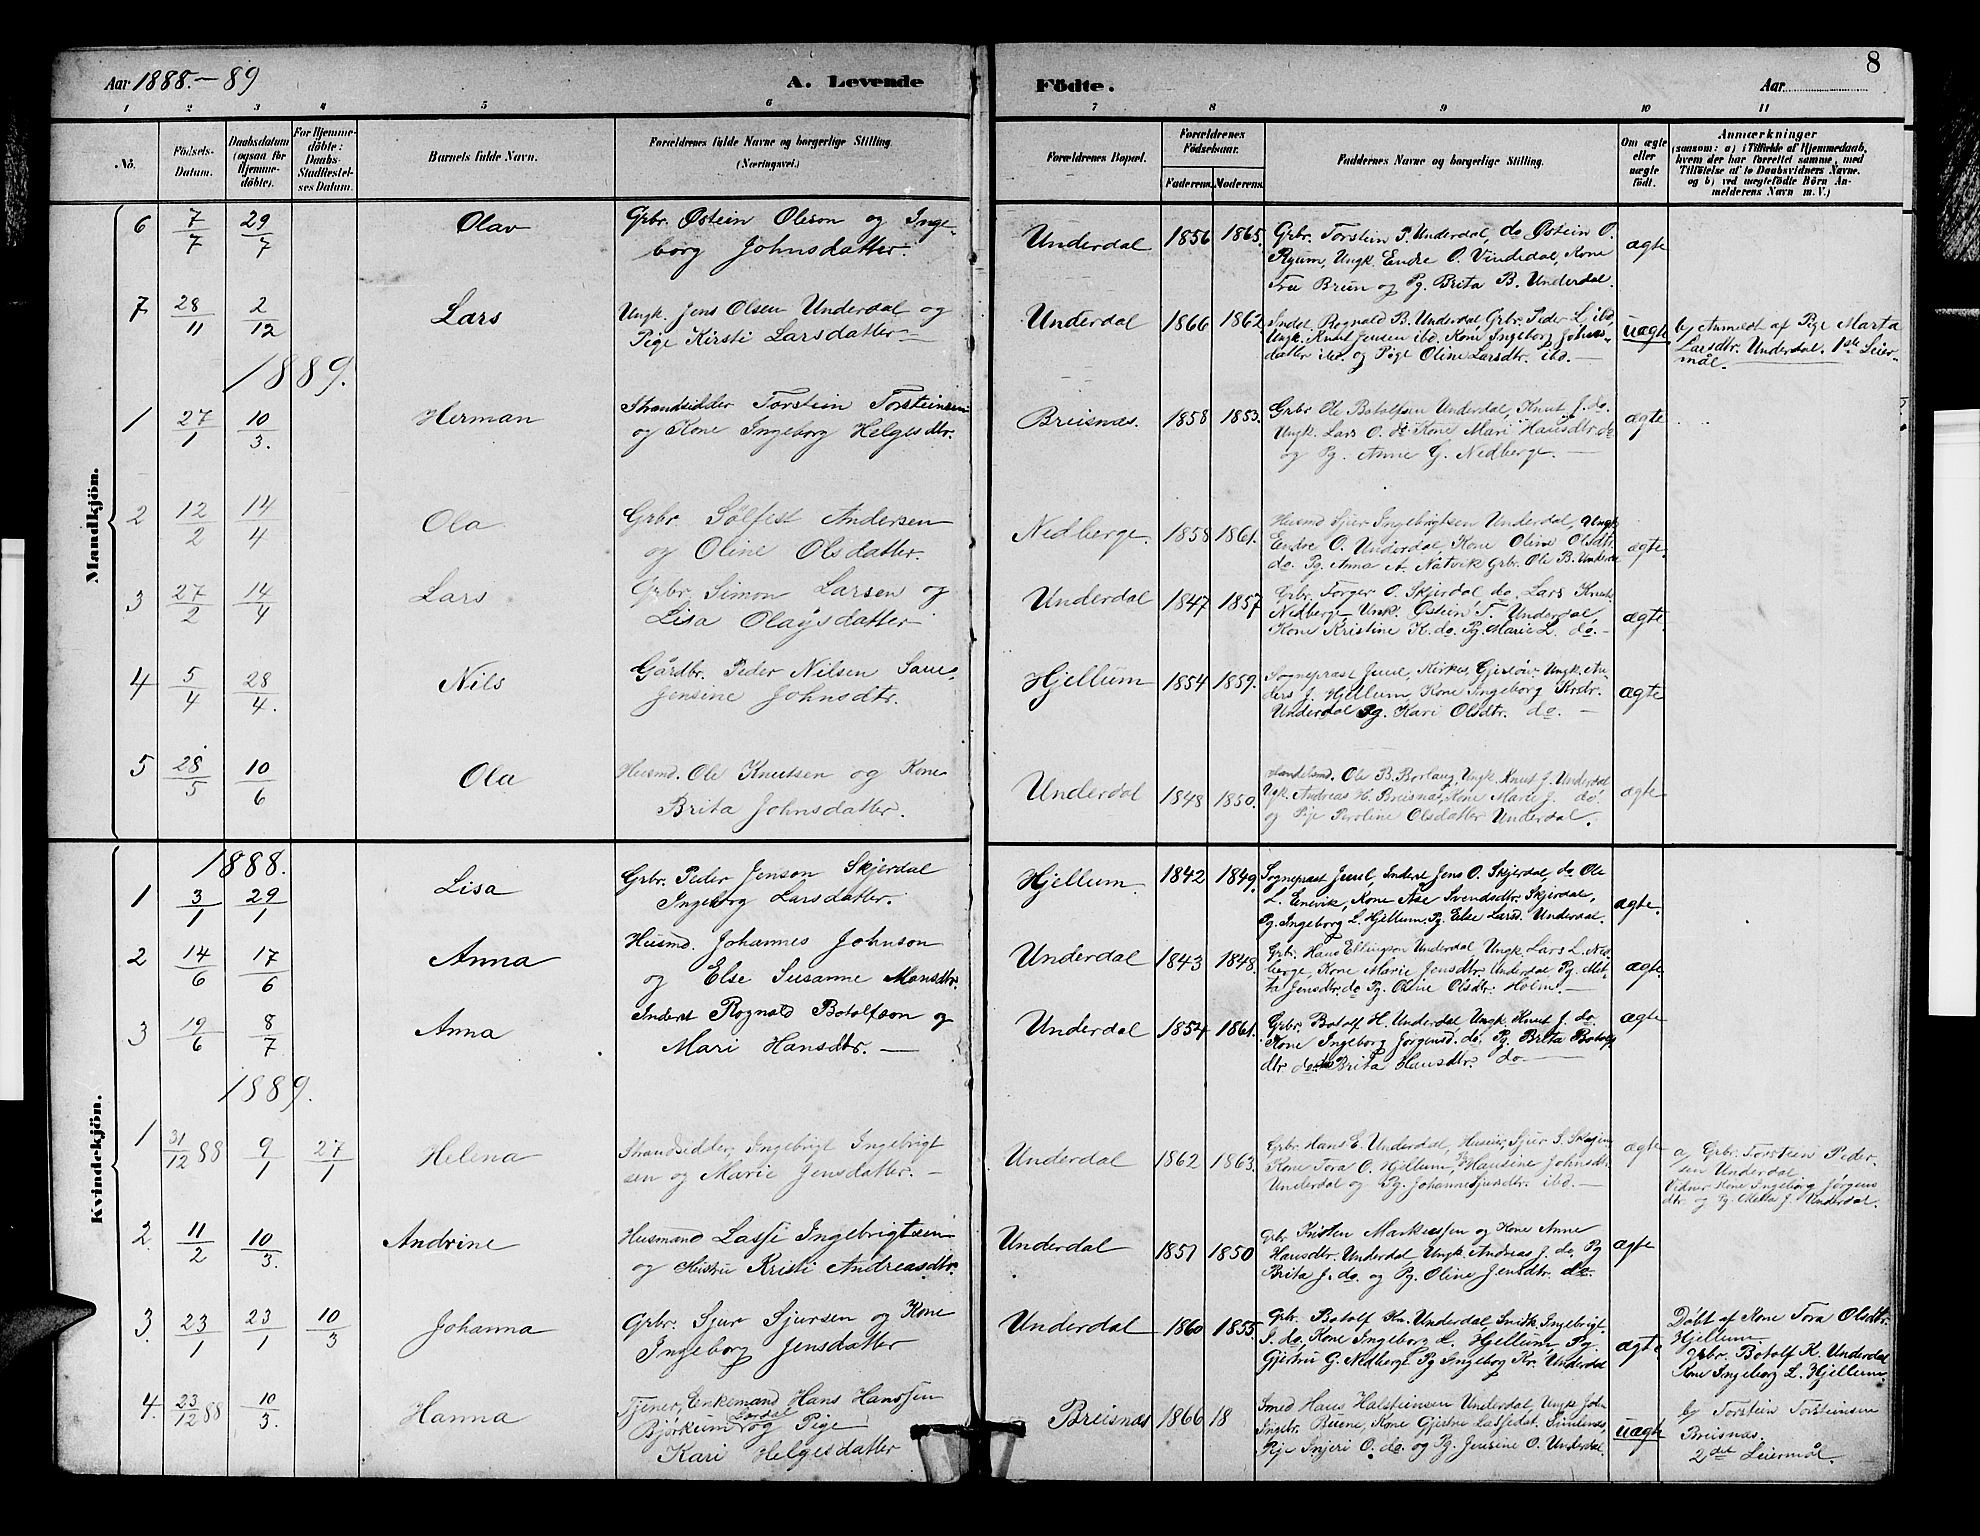 Aar 1888.-89
A. Levende
Födte.
Aar
8
1 2 3 4 5 6 7 8 9 10 11
No.
Födsels-Datum.
Daabsdatum (ogsaa for Hjemme-döbte).
For Hjemme-döbte: Daabs-Stadfæstel-ses Datum.
Barnets fulde Navn.
Forældrenes fulde Navne og borgerlige Stilling. (Næringsvei.)
Forældrenes Bopæl.
Forældrenes Födselsaar.
Faderens. Moderens.
Faddernes Navne og borgerlige Stilling.
Om ægte eller uægte födt.
Anmærkninger
(saasom: a) i Tilfælde af Hjemmedaab, hvem der har forrettet samme, med Tilföielse af to Daabsvidners Navne. og b) ved uægtefödte Börn An-melderens Navn m. V.)
Mandkjön.
6 7/7 29/7 Olav Grbr. Østein Oleson og Inge-
borg Johnsdatter.
Underdal 1856 1865. Grbr. Torstein P. Underdal, do Østein O.
Ryum, Ungk. Endre O. Vindedal, Kone
Brun og Pg. Brita B. Underdal.
ægte
7 28/11 2/12 Lars Ungk. Jens Olsen Underdal og
Pige Kirsti Larsdatter-
Underdal 1866 1862. Inderst Rognald B. Underdal Grbr. Peder L ibd,
Ungk. Knut Jensen ibd. Kone Ingeborg Johans-
datter ibd. og Pige Oline Larsdtr. ibd. -
uægte b, Anmeldt af Pige Marta
Larsdtr. Underdal. 1ste Leier-
mål.
1889.
1 27/1 10/3. Herman Strandsidder Torstein Torsteinsen
og Kone Ingeborg Helgesdtr.
Breisnæs. 1858 1853. Grbr Ole Botolfsen Underdal, Knut J. do.
Ungk. Lars O. do Kone Mari Hansdtr. do
og Pg. Anne G. Nedberge. -
ægte
2 12/2 14/4 Ola Grbr. Sølfest Andersen
og Oline Olsdatter.
Nedberge 1858 1861. Husmd Sjur Ingebrigtsen Underdal, Ungk.
Endre O. Underdal, Kone Oline Olsdtr.
do. Pg. Anna A. Natvik Grbr. Ole B. Underdal
ægte
3 27/2 14/4 Lars Grbr. Simon Larsen og
Lisa Olavsdatter
Underdal 1847 1857 Grbr. Torger O. Skjerdal do, Lars Knut.
Nedberge Ungk. Østein T. Underdal,
Kone Kristine K. do. Pg. Marie L. do. -
ægte.
4 5/4 28/4. Nils Gårdbr. Peder Nilsen
Jensine Johnsdtr.
Hjellum 1854 1859. Sogneprest Juul, Kirkes. Gjerløv. Ungk. An-
ders J. Hjellum, Kone Ingeborg
Underdal Pg. Kari Olsdtr. do. -
ægte
5 28/5 10/6 Ola Husmd. Ole Knutsen og Kone
Brita Johnsdatter.
Underdal 1848 1850. Handelsmd. Ole B. Borlaug, Ungk. Knut J. Underdal
Ugk. Andreas H. Breisnæs, Kone Marie J. do.
og Pige Peroline Olsdatter Underdal.
ægte
Kvindekjön.
1888.
1 3/1 29/1 Lisa Grbr. Peder Jenson Skjerdal
Ingeborg Larsdatter.
Hjellum 1842 1849. Sogneprest Juul, Inderst Jens O. Skjerdal, do Ole
L. Enevik, Kone Åse Svendsdtr. Skjerdal,
Pg. Ingeborg L. Hjellum, Pg Else Larsd. Underdal.
ægte.
2 14/6 17/6 Anna Husmd. Johannes Johnson
og Else Susanne Monsdtr.
Underdal 1843 1848. Grbr. Hans Ellingson Underdal Ungk Lars L. Ned-
berge, Kone Marie Jensdtr. Underdal Pg. Met-
ta Jensdtr. do Pg. Oline Olsdtr. Holm. -
ægte
3 19/6 8/7 Anna Inderst Rognald Botolfson og
Mari Hansdtr. -
Underdal 1854 1861. Grbr. Botolf H. Underdal Ungk Knut J. do
Kone Ingeborg Jørgensd. do. Pg. Brita Botolfs
dtr do Brita Hansdtr. do
ægte
1889.
1 31/12 88 9/1 27/1 Helena Strandsidder, Ingebrigt Ingebrigt
sen og Marie Jensdatter. -
Underdal 1862 1863. Grbr Hans E. Underdal, Sjur S.
Kone Tora O. Hjellum, Pg. Hansine Johnsdtr.
Underdal og Pg. Johanne ibd. -
ægte a, Grbr. Torstein Peder-
sen Underdal,
Vidner Kone Ingeborg Jørgens
dtr. og Pg. Metta J. Underdal.
2. 11/2 10/3. Andrine Husmand Lasse Ingebrigtsen
og Hustru Kristi Andreasdtr.
Underdal 1851 1850 Grbr Kristen Markussen og Kone Anne
Hansdtr. Underdal Ungk. Andreas J. do, Pg
Brita J. do. og Pg. Oline Jensdtr. do.
ægte
3. 23/1 23/1 10/3 Johanna Grbr. Sjur Sjursen og Kone
Ingeborg Jensdatter
Underdal 1860 1855. Grbr. Botolf Kn. Underdal, Smidk Ingebrigt.
S. do, Kone Ingeborg L. Hjellum, Pg.
Gjertru G. Nedberge Pg Ingeborg Kr. Underdal
ægte Döbt af Kone Tora Olsdtr.
Hjellum
Grbr. Botolf K. Underdal
Kone Ingeborg L. Hjellum.
4. 23/12 88 10/3. Hanna Tjener, Enkemand Hans Hanssen
Bjørkum Lærdal og Pige
Kari Helgesdatter
Breisnæs 1866 18 Smed Hans Halsteinsen Underdal, Ungk John
Ingebr. Buene, Kone Gjertru Lassedtr.
Pije Snjeri O. do. og Pg. Jensine O. Underdal.
uægte b, Torstein Torsteinsen
Breisnæs.
2det Leiermål.